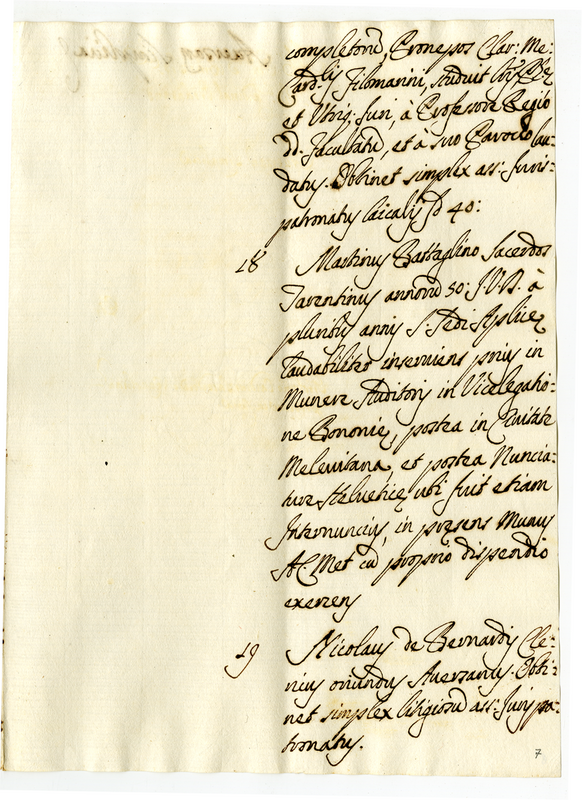 completorũ, Pronepos Clar: Me:
Card:lis Filomarini, studuit
et Utriq; Juri, à Professore Regio
dd. facultatũ, et à suo Parocho lau-
datus. Obtinet simplex ass: Juris-
patronatus laicalis d 40:
18 Martinus Battaglino Sacerdos
Tarentinus annorũ 50: J.V.D. à
pluribus annis S. Sedi Aplicę
laudabiliter inserviens prius in
Munere Auditoris in Vicelegatio-
ne Bononię, postea in Civitate
Melevitana, et postea Nuncia-
turę Helveticę ubi fuit etiam
Internuncius, in pręsens Munus
A.C. Met cũ proprio dispendio
exercens
19 Nicolaus de Bernardis Cle-
ricus oriundus Aversanus. Obti-
net simplex litigiosũ ass: Juris pa-
tronatus.
7